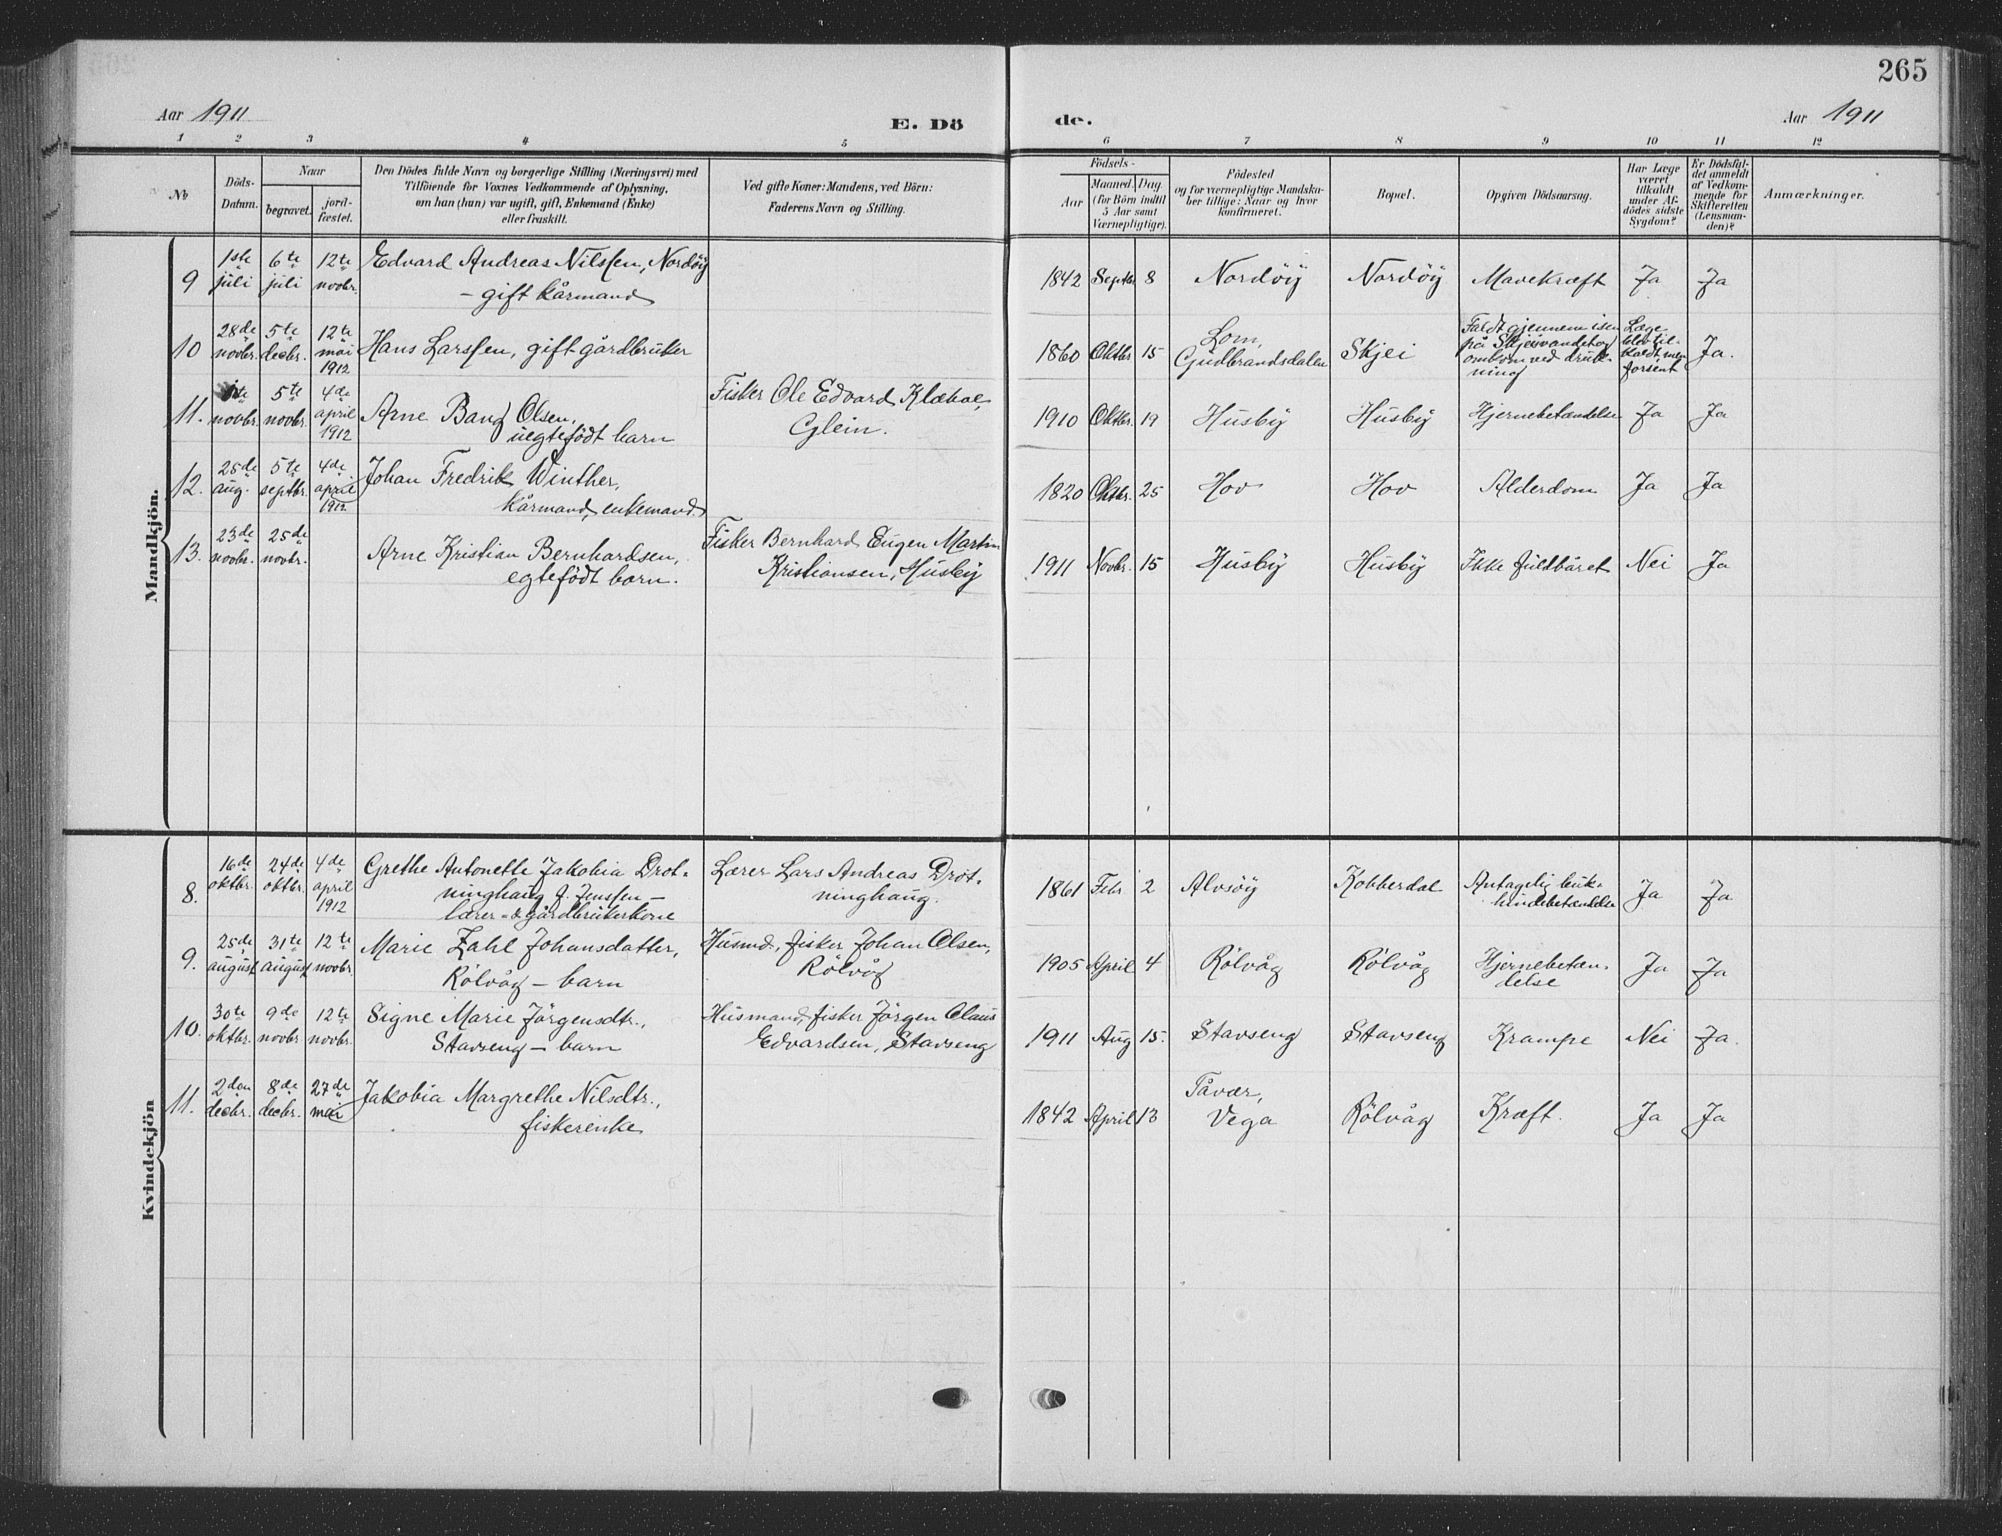 265
Aar 1911
E. Dö
de.
Aar 1911
1 2 3 4 5 6 7 8 9 10 11 12
No
Döds-
Datum.
Naar
begravet.
jord-
fæstet.
Den Dödes fulde Navn og borgerlige Stilling (Næringsvei) med
Tilföiende for Voxnes Vedkommende af Oplysning,
om han (hun) var ugift, gift, Enkemand (Enke)
eller fraskilt.
Ved gifte Koner: Mandens, ved Börn:
Faderens Navn og Stilling.
Födsels-
Aar
Maaned. Dag.
(for Börn indtil
5 Aar samt
Værnepligtige).
Födested
og for værnepligtige Mandska-
ber tillige: Naar og hvor
konfirmeret.
Bopæl.
Opgiven Dödsaarsag.
Har Læge
været
tilkaldt
under Af-
dödes sidste
Sygdom?
Er Dödsfal-
det anmeldt
af Vedkom-
mende for
Skifteretten
(Lensman-
den)?
Anmærkninger.
Mandkjön.
9 1ste juli 6te juli 12te novbr. Edvard Andreas Nilssen, Nordöy
- gift kårmand
1842 Septbr 8 Nordöy Nordöy Mavekræft Ja Ja
10 28de novbr. 5te decbr. 12te mai 1912 Hans Larssen, gift gårdbruker
1860 Oktbr 15 Lom,
Gudbrandsdalen Skjei
Faldt gjennem isen
på Skjeivandet og
omkom ved druk-
ning
Læge
blev til-
kaldt, men
forsent
Ja.
11. novbr. 5te novbr. 4de april 1912 Arne Bang Olsen,
uegtefödt barn
Fisker Ole Edvard Klæboe,
Glein.
1910 Oktbr. 19 Husby Husby Hjernebetændelse Ja Ja
12. 25de aug. 5te septbr. 4de april 1912 Johan Fredrik Winther,
kårmand, enkemand.
1820 Oktbr. 25 Hov Hov Alderdom Ja Ja
13. 23de novbr. 25de novbr. Arne Kristian Bernhardsen,
egtefödt barn.
Fisker Bernhard Eugen Martin
Kristiansen, Husby
1911 Novbr. 15 Husby Husby Ikke fuldbåret Nei Ja
Kvindekjön
8. 16de oktbr. 24de oktbr. 4de april 1912 Grethe Antonette Jakobia Drot-
ninghaug f. Jenssen -
lærer- & gårdbrukerkone
Lærer Lars Andreas Drot-
ninghaug.
1861 Febr 2 Alvsöy Kobberdal Antagelig buk-
hindebetændelse Ja Ja
9. 25de august 31te august 12te novbr. Marie Zahl Johansdatter,
Rölvåg - barn
Husmd., fisker Johan Olsen,
Rölvåg
1905 April 4 Rölvåg Rölvåg Hjernebetæn-
delse Ja Ja
10. 30te oktbr. 9de novbr. 12te novbr. Signe Marie Jörgensdtr.,
Stavseng - barn
Husmand, fisker Jörgen Claus
Edvardsen, Stavseng
1911 Aug 15. Stavseng Stavseng Krampe Nei Ja.
11. 2den decbr. 8de decbr. 27de mai Jakobia Margrethe Nilsdtr.,
fiskerenke
1842 April 13 Tåvær,
Vega Rölvåg Kræft. Ja Ja